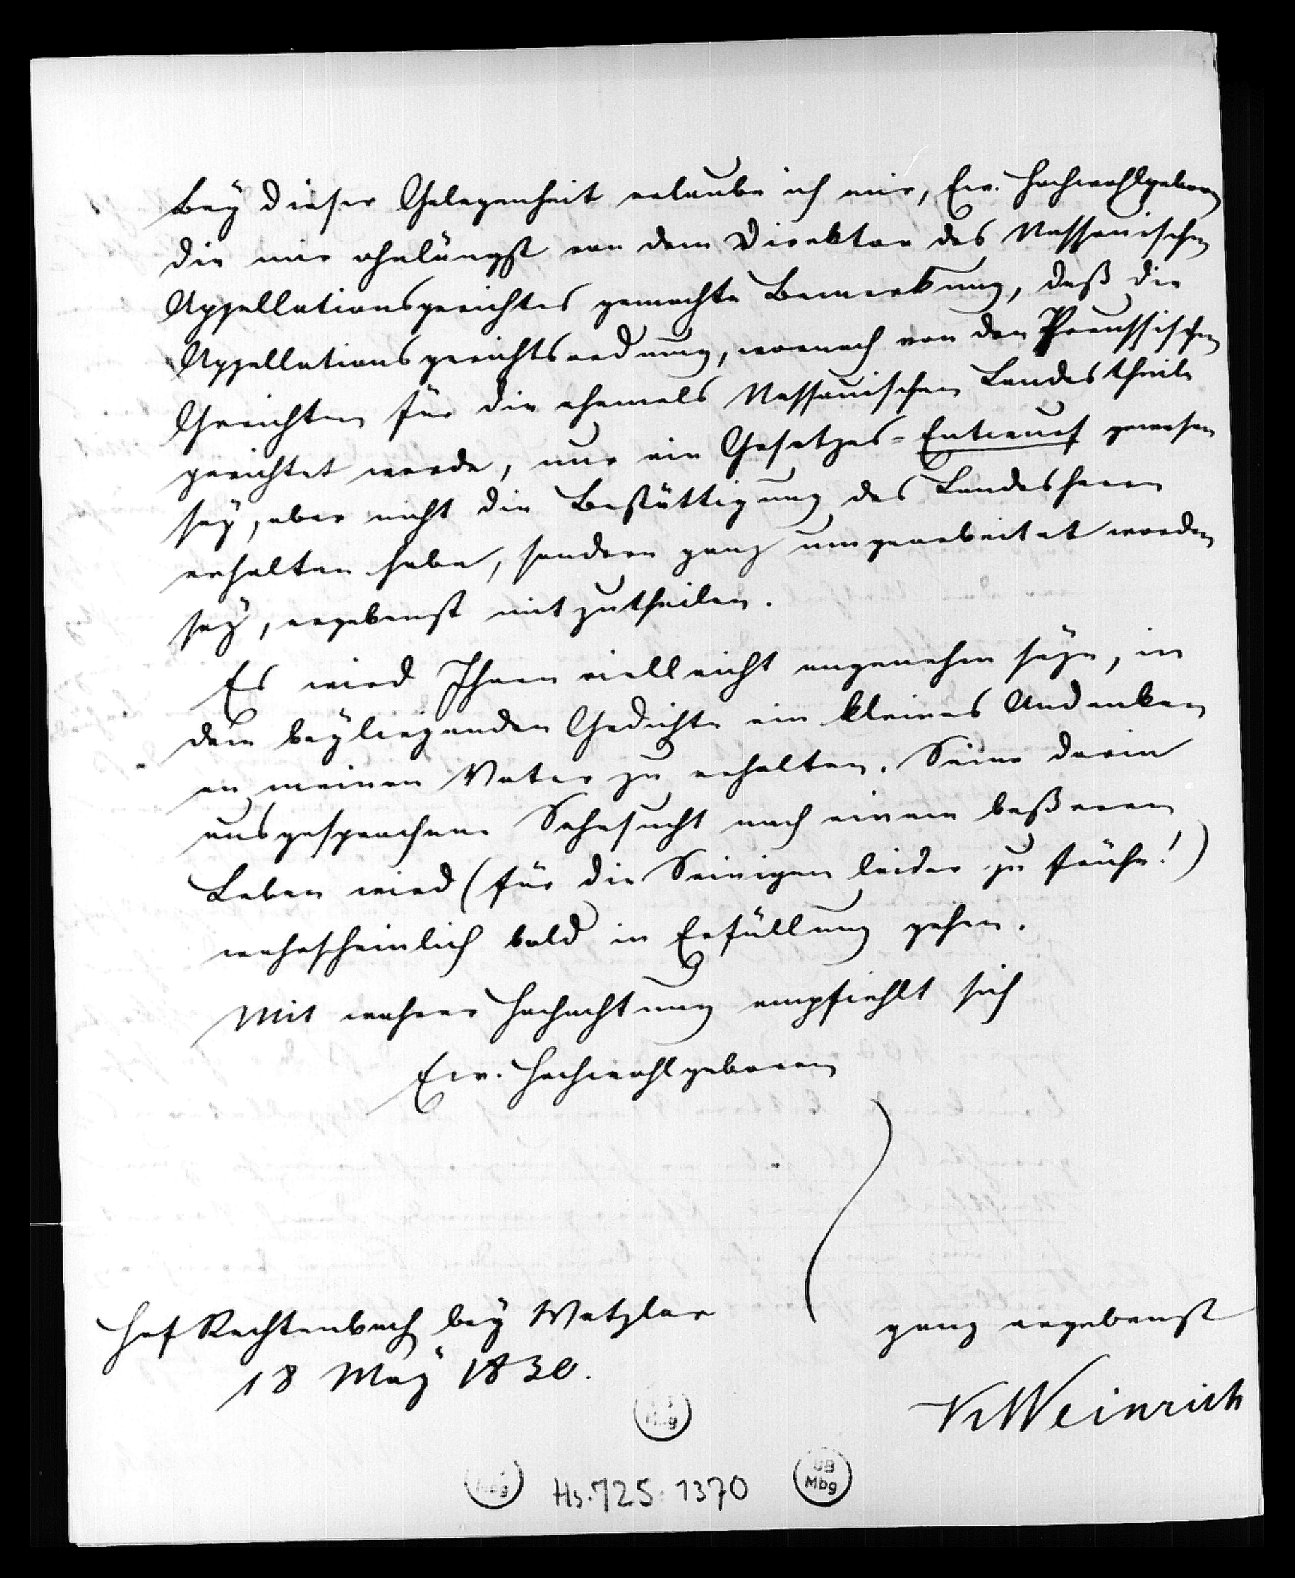 Bey dieser Gelegenheit erlaube ich mir, Ew. Hochwohlgeboren
die mir ohnlängst von dem Direktor des Nassauischen
Appellationsgerichtes gemachte Bemerkung, daß die
Appellationsgerichtsordnung, wornach von den Preussischen
Gerichten für die ehemals Nassauischen Landestheile
gerichtet werde, nur ein Gesetzes-Entwurf gewesen
sey, aber nicht die Bestättigung des Landesherrn
erhalten habe, sondern ganz umgearbeitet worden
sey, ergebenst mitzutheilen.
Es wird Ihnen vielleicht angenehm seyn, in
dem beyliegenden Gedichte ein kleines Andenken
an meinen Vater zu erhalten. Seine darin
ausgesprochene Sehnsucht nach einem beßeren
Leben wird (für die Seinigen leider zu frühe!)
wahrscheinlich bald in Erfüllung gehen.
Mit wahrer Hochachtung empfiehlt sich
Ew. Hochwohlgeboren
Hof Rechtenbach bey Wetzlar
18 May 1830.
ganz ergebenst
KWeinrich
Hs. 725: 1370
UB
Mbg